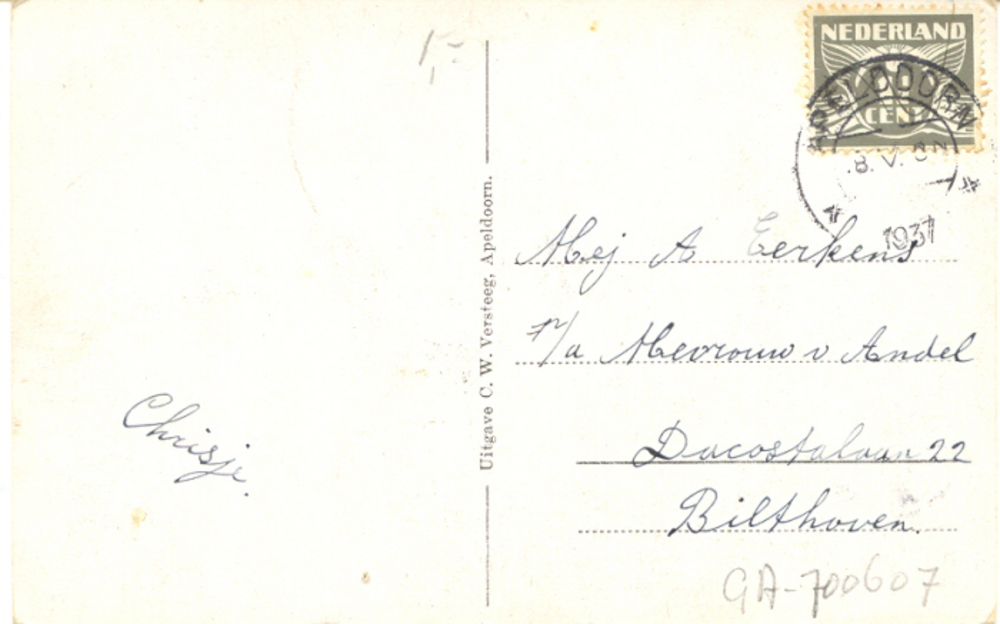 1,-
NEDERLAND
CENT
APELDOORN
8.V.
1937
Uitgave C. W. Versteeg, Apeldoorn.
Mej A Eerkens
p/a Mevrouw v Andel
Dacostalaan 22
Bilthoven.
Chrisje.
GA-700607